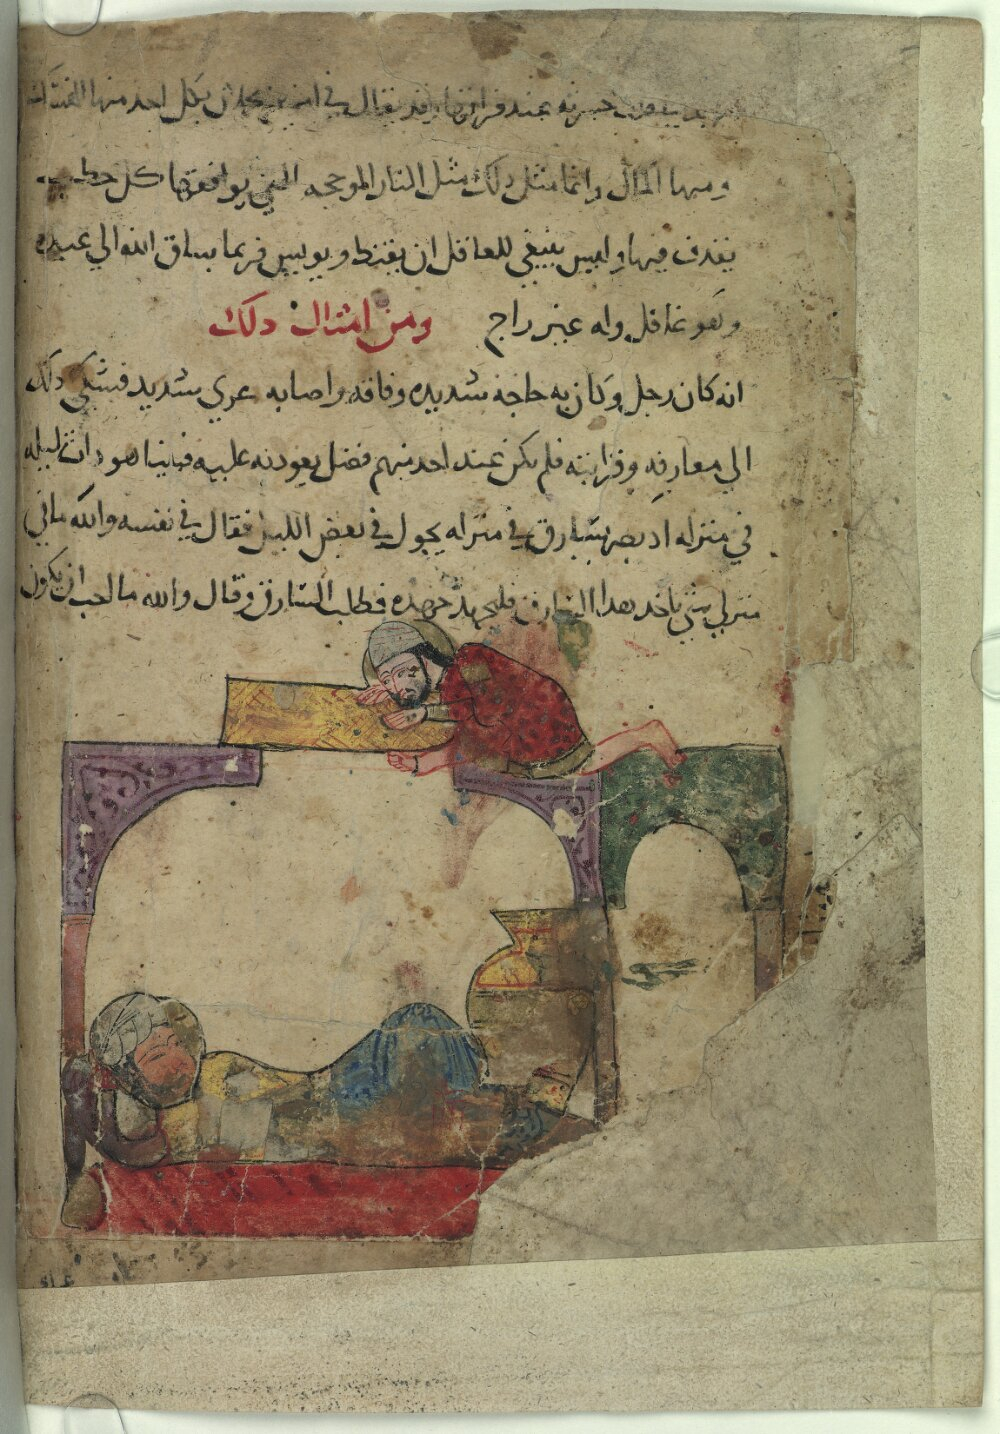 عند فراقها وقد يقال في امرين يجل بكل احد منها
ومنها المال وانما مثل ذلك مثل النار الموججه التي يوافقها كل حطب
يقذف فيها وليس ينبغي للعاقل ان يقنط وييس فربما يساق الله الي عبده
وهو غافل وله غير راج ومن امثال ذلك
انه كان رجل وكان به حاجة شديده وفاقه واصابه عري شديد فشكي ذلك
الي معارفه وقرابته فلم يكن عند احد منهم فضل يعود به عليه فبينا هو ذات ليله
في منزله اذ بصر بسارق في منزله يجول في بعض الليل فقال في نفسه والله ما في
منزلي شي ياخد هدا السارق فليجهد جهده فطاب السارق وقال والله ما احب ان يكون